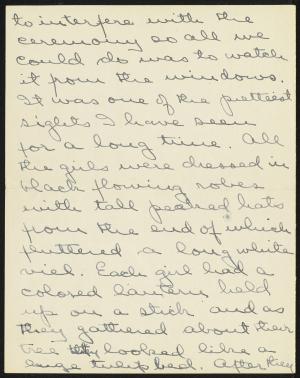 to interfere with the
ceremony so all we
could do was to watch
it from the windows.
It was one of the prettiest
sights I have seen
for a long time. All
the girls were dressed in
black flowing robes
with tall peaked hats
from the end of which
fluttered a long white
viel. Each girl had a
colored lantern held
up on a stick and as
they gathered about their
tree they looked like a
large tulip bed. After they